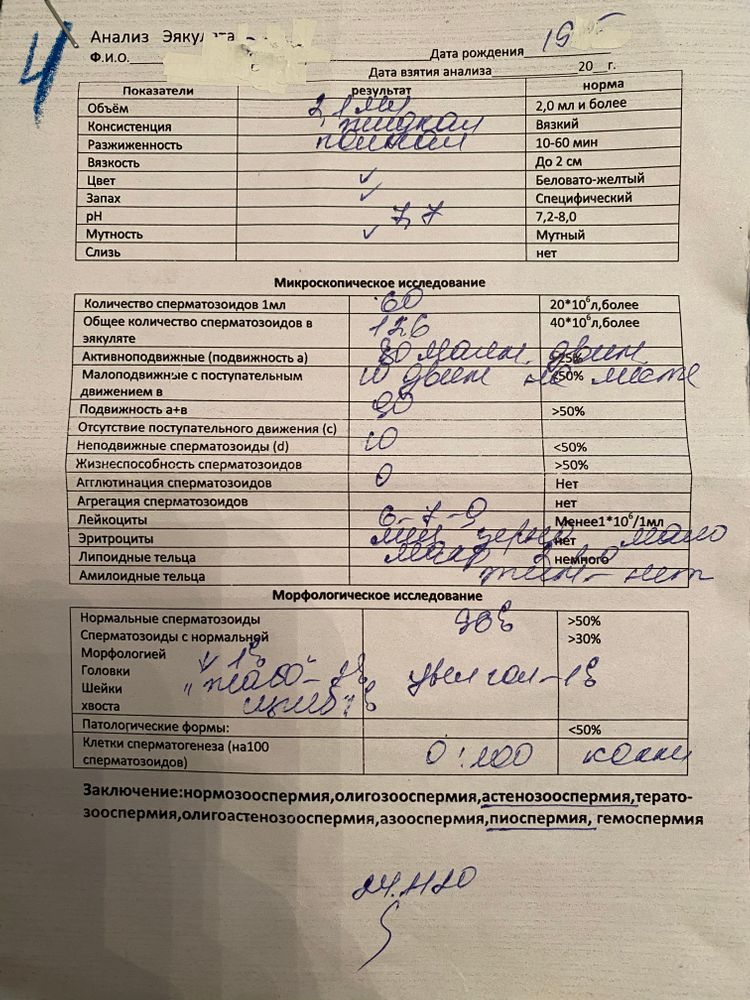 4
Анализ Эякулята
Ф.И.О. Дата рождения 19
Дата взятия анализа 20 г.
Показатели результат норма
Объём 2,1 мл 2,0 мл и более
Консистенция жидкая Вязкий
Разжиженность полная 10-60 мин
Вязкость До 2 см
Цвет ✓ Беловато-желтый
Запах ✓ Специфический
pH 7,7 7,2-8,0
Мутность ✓ Мутный
Слизь нет
Микроскопическое исследование
Количество сперматозоидов 1мл 60 20*10⁶л,более
Общее количество сперматозоидов в 126 40*10⁶л,более
эякуляте
Активноподвижные (подвижность а) 80 движ. 25%
Малоподвижные с поступательным 10 движ на месте <50%
движением в
Подвижность а+в >50%
Отсутствие поступательного движения (с)
Неподвижные сперматозоиды (d) 10 <50%
Жизнеспособность сперматозоидов >50%
Агглютинация сперматозоидов 0 Нет
Агрегация сперматозоидов нет
Лейкоциты 6-7-0 Менее1*10⁶/1мл
Эритроциты зерна мало нет
Липоидные тельца немного
Амилоидные тельца нет
Морфологическое исследование
Нормальные сперматозоиды >50%
Сперматозоиды с нормальной >30%
Морфологией
Головки 1%
Шейки
хвоста
Патологические формы: <50%
Клетки сперматогенеза (на100 0:100 кокки
сперматозоидов)
Заключение:нормозооспермия,олигозооспермия,астенозооспермия,терато-
зооспермия,олигоастенозооспермия,азооспермия,пиоспермия, гемоспермия
24.11.20